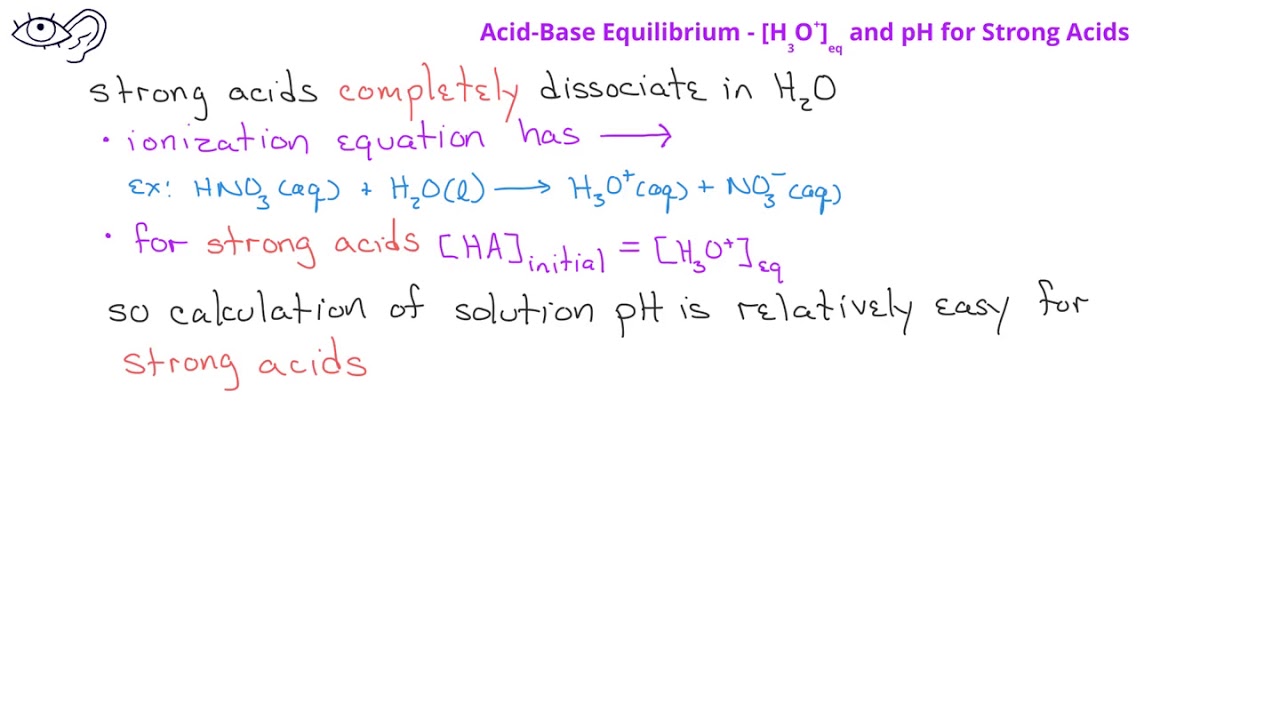 Acid-Base Equilibrium - [H₃O⁺]eq and pH for Strong Acids
strong acids completely dissociate in H₂O
• ionization equation has ⟶
Ex: HNO₃(aq) + H₂O(l) ⟶ H₃O⁺(aq) + NO₃⁻(aq)
• for strong acids [HA]initial = [H₃O⁺]eq
so calculation of solution pH is relatively easy for
strong acids